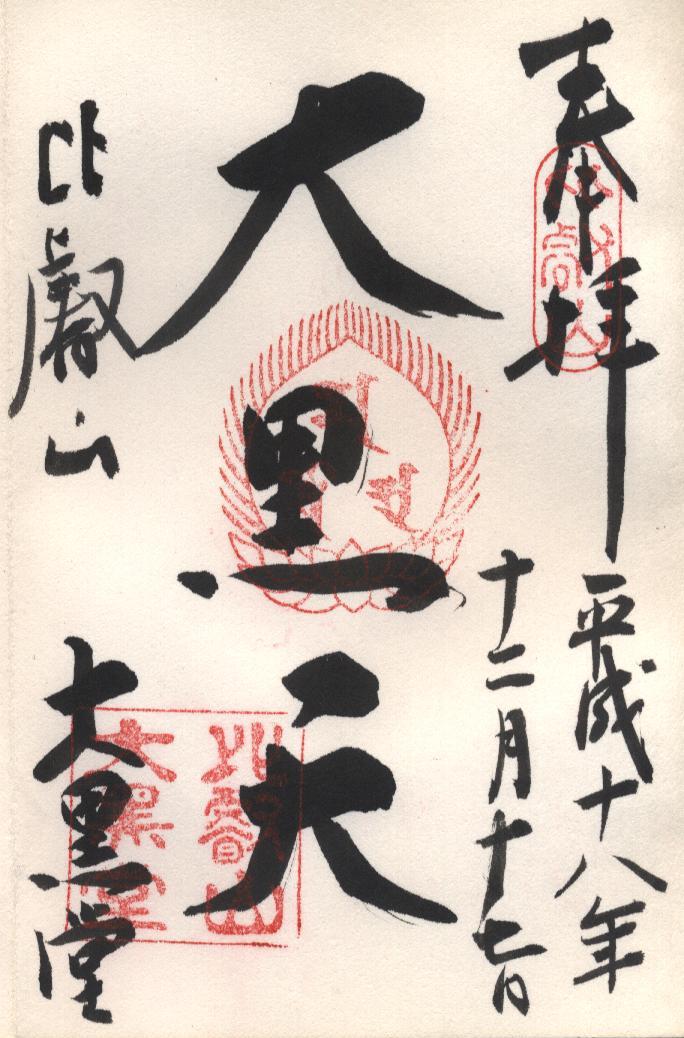 奉拝
平成十八年
十二月十七日
大黒天
比叡山
大黒堂
比叡山
大黒堂